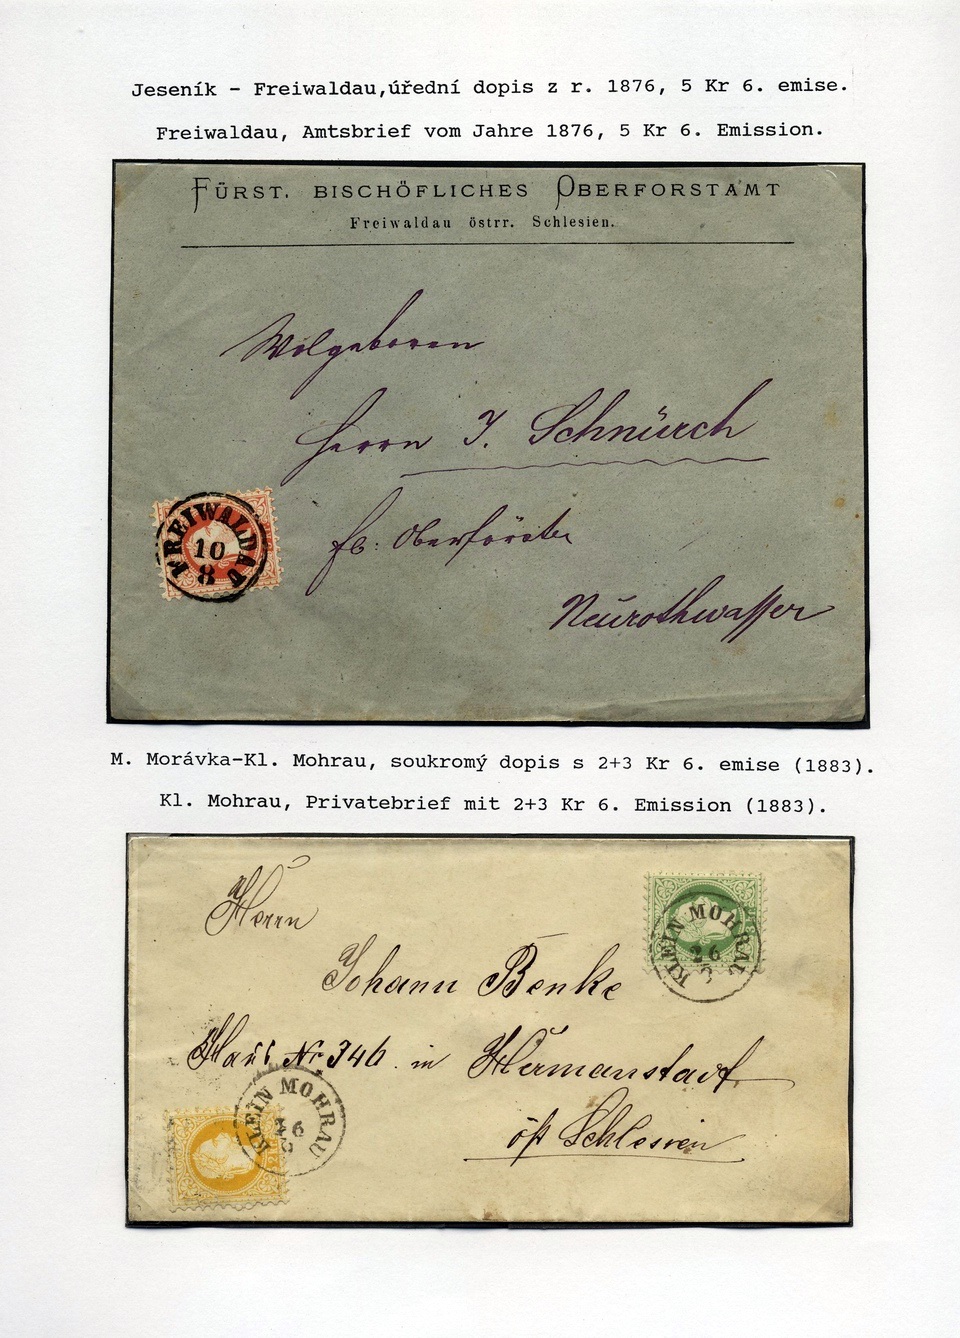 Jeseník - Freiwaldau,úřední dopis z r. 1876, 5 Kr 6. emise.
Freiwaldau, Amtsbrief vom Jahre 1876, 5 Kr 6. Emission.
FÜRST. BISCHÖFLICHES OBERFORSTAMT
Freiwaldau östrr. Schlesien.
Wolgeboren
Herrn J. Schnürch
fb: Oberförster
Neurothwasser
FREIWALDAU
10
8
M. Morávka-Kl. Mohrau, soukromý dopis s 2+3 Kr 6. emise (1883).
Kl. Mohrau, Privatebrief mit 2+3 Kr 6. Emission (1883).
Herrn
Johann Benke
Haus Nr. 346. in Hermanstadt
öst Schlesien
KLEIN MOHRAU
26
KLEIN MOHRAU
6